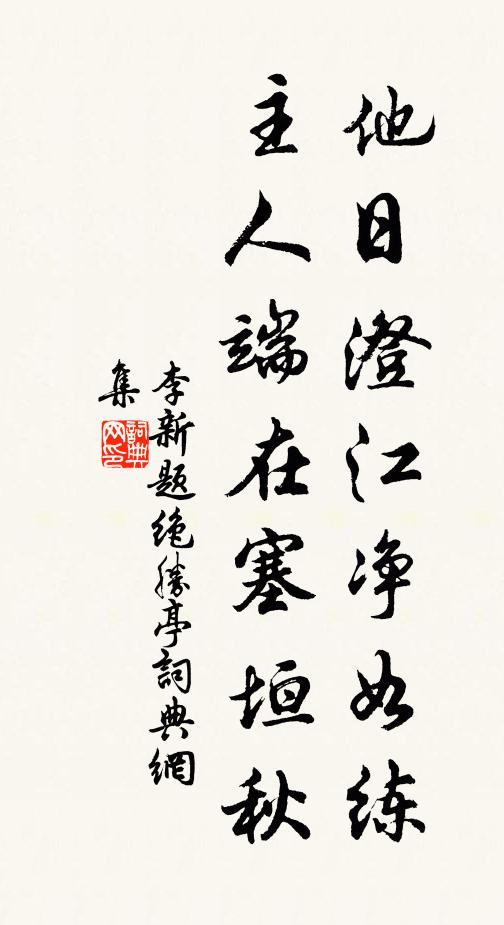 他日澄江净如练
主人端在塞垣秋
李新题绝胜亭詞典網
集
詞典网印